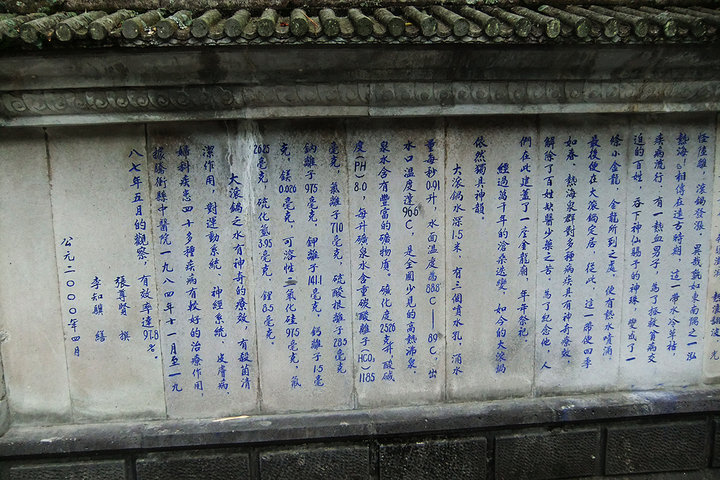 怪陸離,滾鍋發漲,如東南隅之一泓
熱海。相傳在遠古時期,這一帶水冷草枯,
疾病流行,有一熱血男子,為了拯救貧病交
迫的百姓,吞下神仙賜予的神珠,變成了一
條小金龍,金龍所到之處,便有熱水噴涌
最後便在大滾鍋定居,從此,這一帶便四季
如春,熱海泉群對多種疾病具有神奇療效,
解除了百姓缺醫少藥之苦。為了紀念他,人
們在此建蓋了一座金龍廟,年年祭祀
經過萬千年的滄桑遞變,如今的大滾鍋
依然獨具神韻。
大滾鍋水深1.5米,有三個噴水孔,涌水
量每秒0.91升,水面溫度為88.8°C——89°C,出
水口溫度達96.6°C,是全國少見的高熱沸泉。
泉水含有豐富的礦物質,礦化度2.526克/升,酸碱
度(PH)8.0,每升礦泉水含重碳酸離子(HCO3)1185
毫克,氯離子710毫克,硫酸根離子28.5毫克
鈉離子975毫克,鉀離子141.1毫克,鈣離子1.5毫
克,鎂0.026毫克,可溶性二氧化硅97.5毫克,氟
26.25毫克,硫化氫3.95毫克,鋰8.5毫克。
大滾鍋之水有神奇的療效,有殺菌清
潔作用,對運動系統,神經系統,皮膚病,
婦科疾患四十多種疾病有較好的治療作用,
據騰衝縣中醫院一九八四年十一月至一九
八七年五月的觀察,有效率達97.8%。
張尊賢 撰
李知驥 繕
公元二000年四月